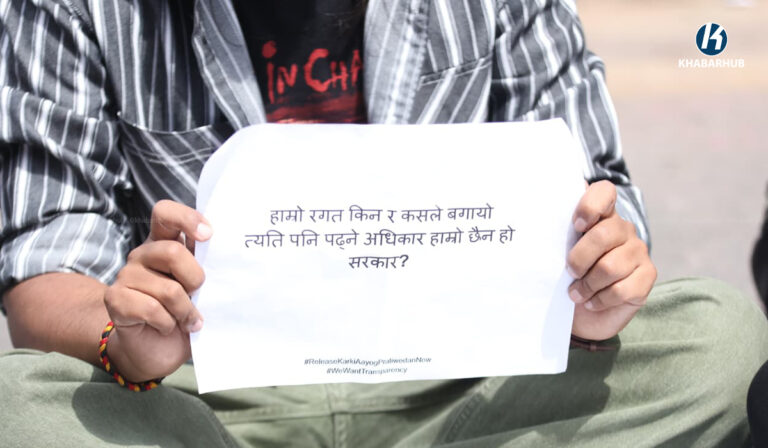 KHABARHUB
IN CHA
हाम्रो रगत किन र कसले बगायो
त्यति पनि पढ्ने अधिकार हाम्रो छैन हो
सरकार?
#ReleaseKarkiAayogPratiwedanNow
#WeWantTransparency